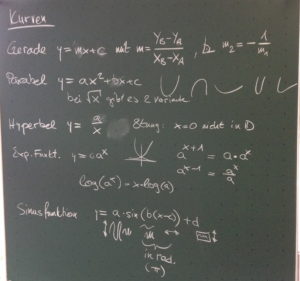 Kurven
Gerade y=mx+c mit m= y_B-y_A / x_B-x_A , m_2 = - 1/m_1
Parabel y=ax²+bx+c
bei √x gibt es 2
Hyperbel y= a/x x=0 nicht in D
Exp. Funkt. y=a^x a^(x+1) = a·a^x
a^(x-1) = a^x/a
log(a^x)=x·log(a)
Sinusfunktion y=a·sin(b(x-c))+d
in rad.
(π)